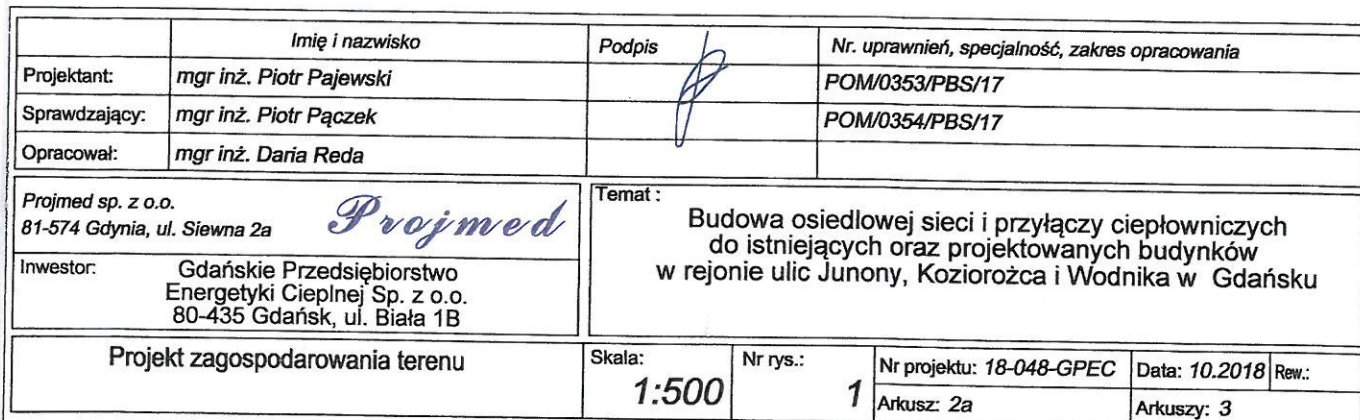 Imię i nazwisko Podpis Nr. uprawnień, specjalność, zakres opracowania
Projektant: mgr inż. Piotr Pajewski POM/0353/PBS/17
Sprawdzający: mgr inż. Piotr Pączek POM/0354/PBS/17
Opracował: mgr inż. Daria Reda
Projmed sp. z o.o.
81-574 Gdynia, ul. Siewna 2a
Projmed
Inwestor: Gdańskie Przedsiębiorstwo
Energetyki Cieplnej Sp. z o.o.
80-435 Gdańsk, ul. Biała 1B
Temat :
Budowa osiedlowej sieci i przyłączy ciepłowniczych
do istniejących oraz projektowanych budynków
w rejonie ulic Junony, Koziorożca i Wodnika w Gdańsku
Projekt zagospodarowania terenu
Skala:
1:500
Nr rys.:
1
Nr projektu: 18-048-GPEC Data: 10.2018 Rew.:
Arkusz: 2a Arkuszy: 3